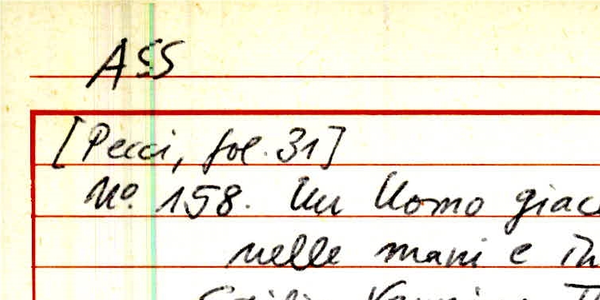 ASS
[Pecci, fol. 31]
No. 158. Un Uomo giac
nelle mani e in